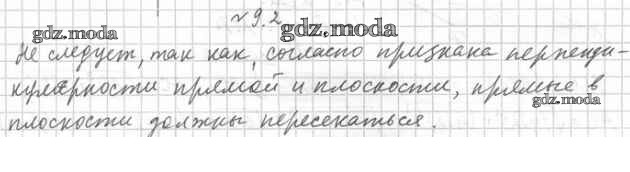 №9.2
gdz.moda gdz.moda
Не следует, так как, согласно признака перпенди-
кулярности прямой и плоскости, прямые в
gdz.moda
плоскости должны пересекаться.